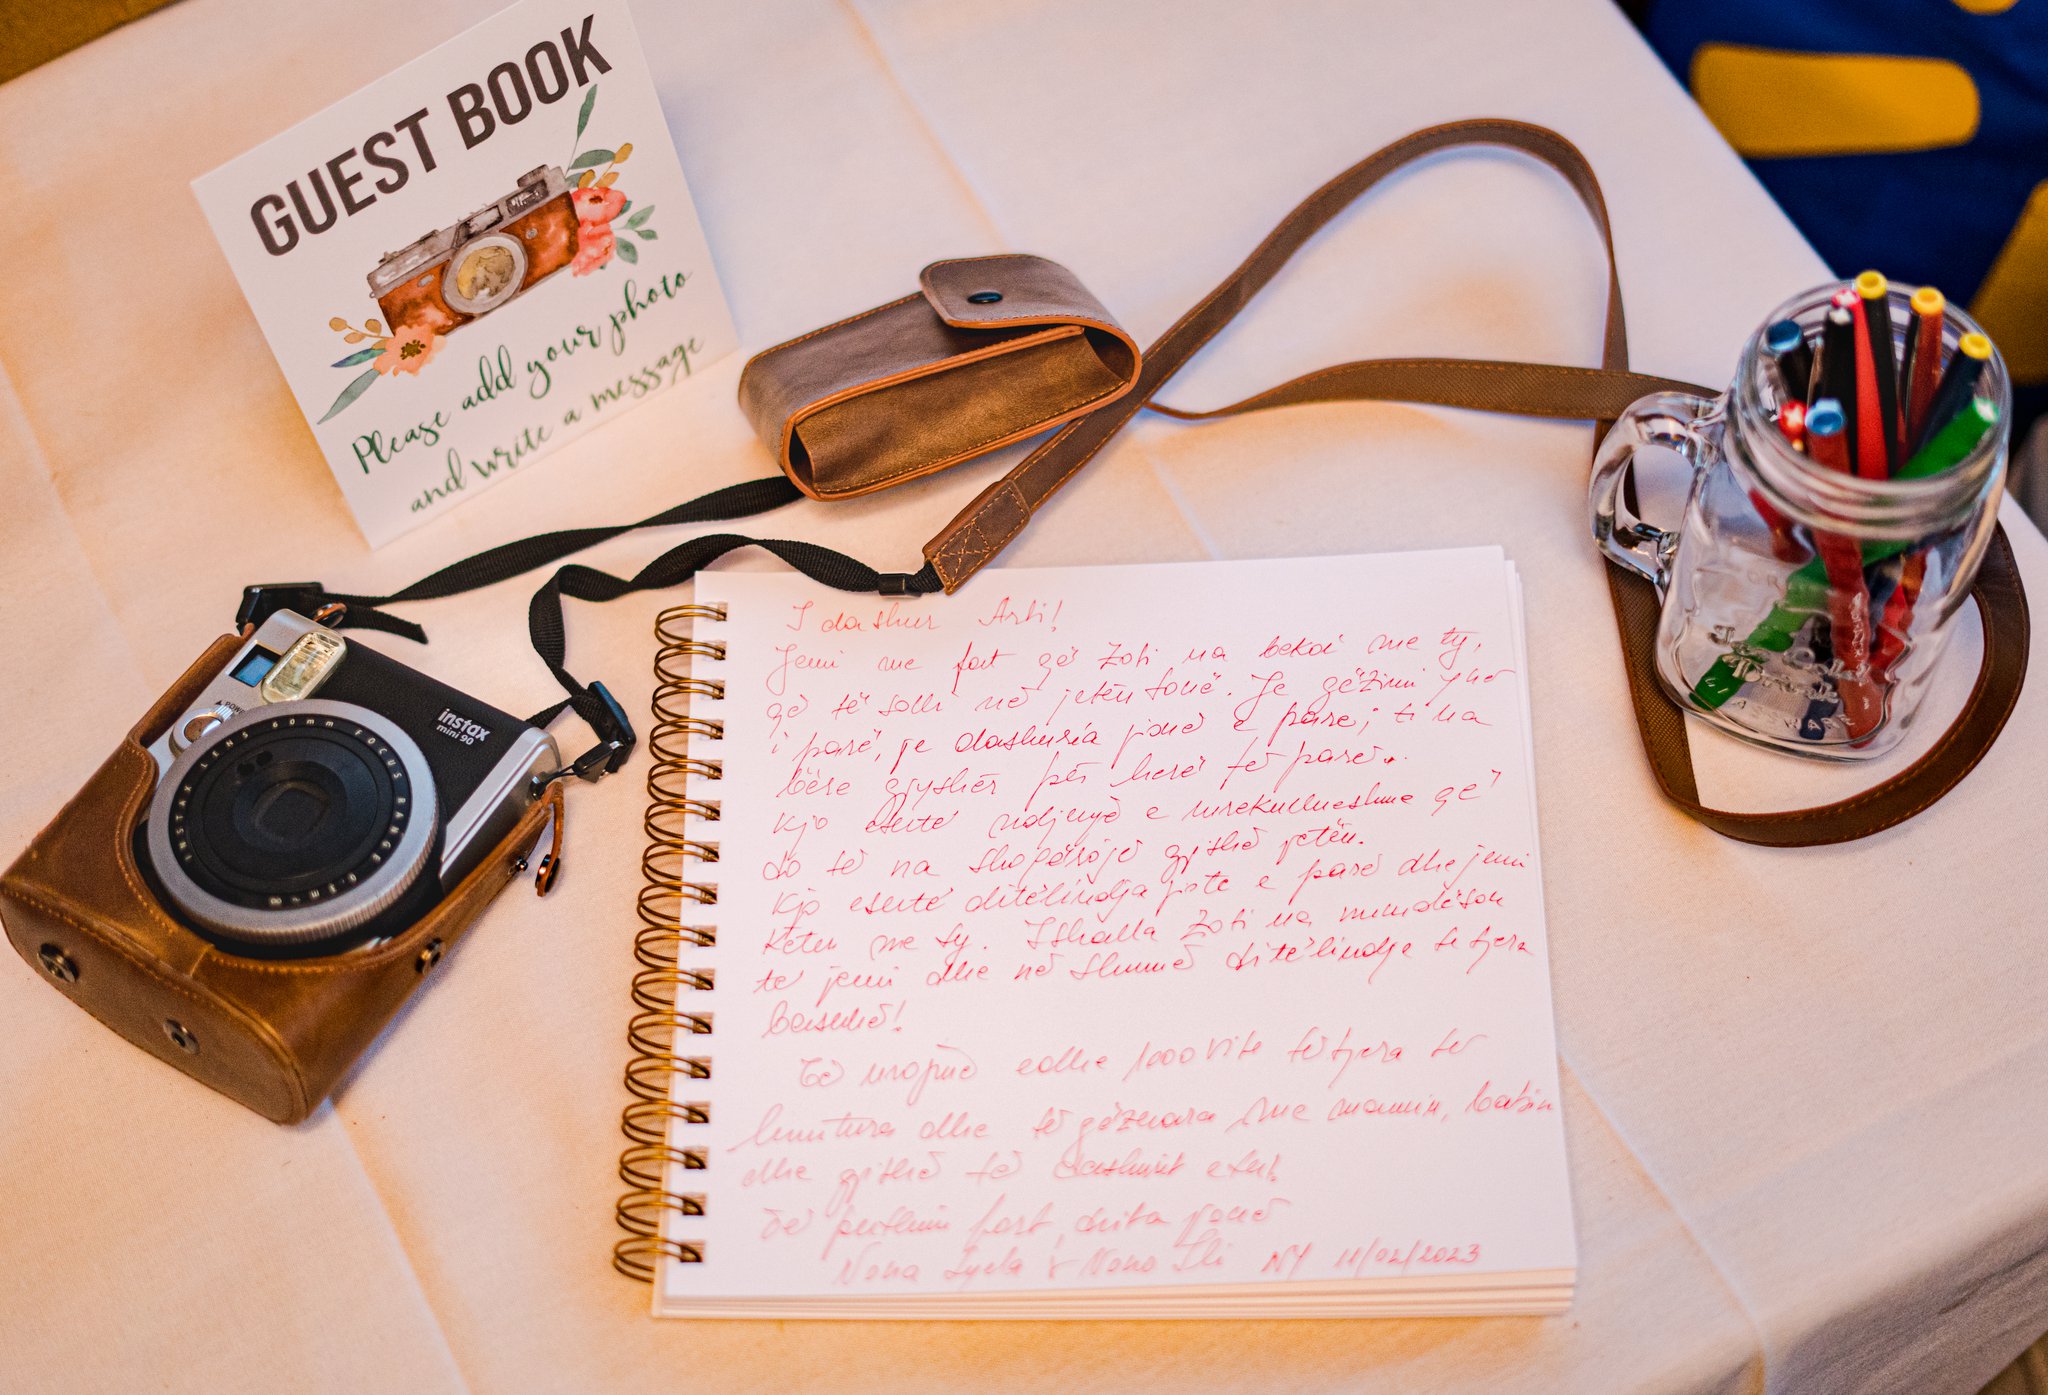 GUEST BOOK
Please add your photo
and write a message
instax
mini 90
INSTAX LENS 60mm FOCUS RANGE 0.3m~∞
I dashur Arti!
Jemi me fat që Zoti na bekoi me ty,
që të solli në jetën tonë. Je gëzimi ynë
i parë, je dashuria jonë e parë; ti na
bëre gjyshër për herë të parë..
Kjo është ndjenjë e mrekullueshme që
do të na shoqërojë gjithë jetën.
Kjo është ditëlindja jote e parë dhe jemi
këtu me ty. Ishalla Zoti na mundëson
të jemi dhe në shumë ditëlindje të tjera
bashkë!
Të urojmë edhe 1000 vite të tjera të
lumtura dhe të gëzuara me mamin, babin
dhe gjithë të dashurit e tu!
Të puthim fort, drita jonë
Nona Lyeta & Nono Ili NY 11/02/2023